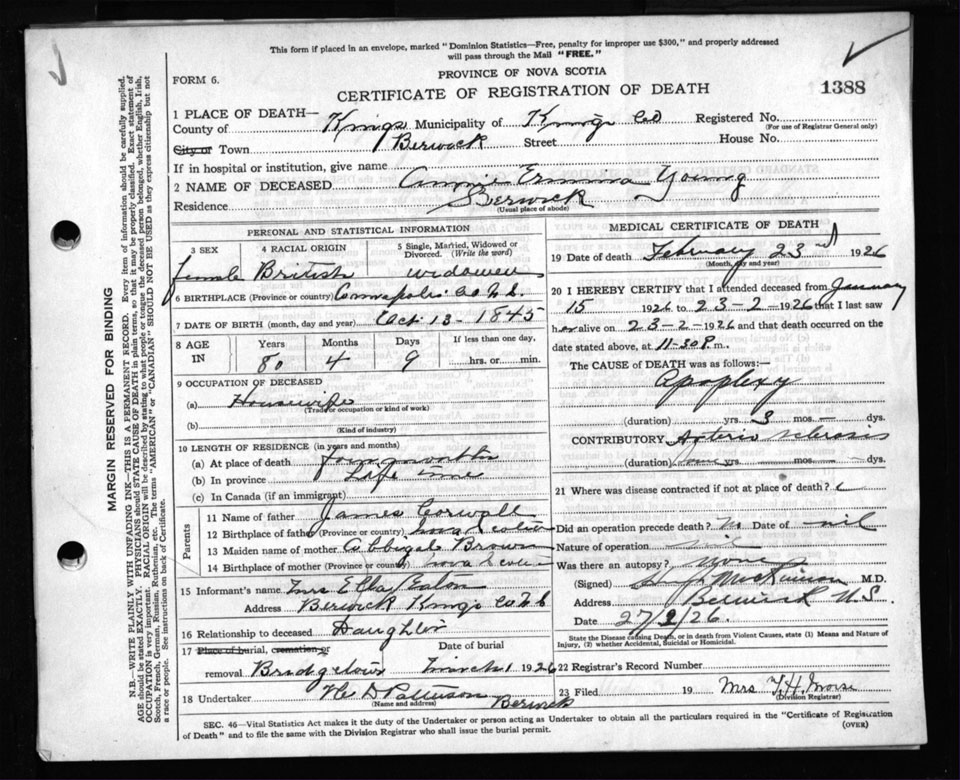 This form if placed in an envelope, marked "Dominion Statistics—Free, penalty for improper use $300," and properly addressed
will pass through the Mail "FREE."
PROVINCE OF NOVA SCOTIA
FORM 6.
CERTIFICATE OF REGISTRATION OF DEATH
1388
1 PLACE OF DEATH—
County of Kings Municipality of Kings Co Registered No.
(For use of Registrar General only)
City or Town Berwick Street House No.
If in hospital or institution, give name
2 NAME OF DECEASED Annie Ermina Young
Residence Berwick
(Usual place of abode)
PERSONAL AND STATISTICAL INFORMATION
3 SEX 4 RACIAL ORIGIN 5 Single, Married, Widowed or Divorced. (Write the word)
female British widowed
6 BIRTHPLACE (Province or country) Annapolis Co N.S.
7 DATE OF BIRTH (month, day and year) Oct 13 - 1845
8 AGE IN Years Months Days If less than one day,
80 4 9 hrs. or min.
9 OCCUPATION OF DECEASED
(a) Housewife
(Trade or occupation or kind of work)
(b)
(Kind of industry)
10 LENGTH OF RESIDENCE (in years and months)
(a) At place of death four months
(b) In province Life time
(c) In Canada (if an immigrant)
Parents
11 Name of father James
12 Birthplace of father (Province or country) Nova Scotia
13 Maiden name of mother Abbigal Brown
14 Birthplace of mother (Province or country) Nova Scotia
15 Informant's name Mrs Ella Eaton
Address Berwick Kings Co N.S.
16 Relationship to deceased Daughter
17 Place of burial, cremation or removal Bridgetown Date of burial March 1 1926
18 Undertaker Pattison
(Name and address) Berwick
MEDICAL CERTIFICATE OF DEATH
19 Date of death February 23rd 1926
(Month, day and year)
20 I HEREBY CERTIFY that I attended deceased from January
15 1926 to 23-2-1926 that I last saw
her alive on 23-2-1926 and that death occurred on
date stated above, at 11-30 P. m.
The CAUSE of DEATH was as follows:—
Apoplexy
(duration) yrs. 3 mos. — dys.
CONTRIBUTORY Arterio sclerosis
(duration) yrs. mos. dys.
21 Where was disease contracted if not at place of death?
Did an operation precede death? No Date of nil
Nature of operation nil
Was there an autopsy? None
(Signed) McKinnon M.D.
Address Berwick N.S.
Date 27/2/26.
State the Disease causing Death, or in death from Violent Causes, state (1) Means and Nature of
Injury, (2) whether Accidental, Suicidal or Homicidal.
22 Registrar's Record Number
23 Filed 19 Mrs T.H. Morse
(Division Registrar)
SEC. 46—Vital Statistics Act makes it the duty of the Undertaker or person acting as Undertaker to obtain all the particulars required in the "Certificate of Registration
of Death" and to file the same with the Division Registrar who shall issue the burial permit.
(OVER)
MARGIN RESERVED FOR BINDING
N.B.—WRITE PLAINLY WITH UNFADING INK—THIS IS A PERMANENT RECORD. Every item of information should be carefully supplied.
AGE should be stated EXACTLY. PHYSICIANS should STATE CAUSE OF DEATH in plain terms, so that it may be properly classified. Exact statement of
OCCUPATION is very important. RACIAL ORIGIN will be described by stating to what people or tongue the deceased person belonged, whether English, Irish,
Scotch, French, German, Russian, Ruthenian, etc. The terms "AMERICAN" or "CANADIAN" SHOULD NOT BE USED as they express citizenship but not
a race or people. See instructions on back of Certificate.